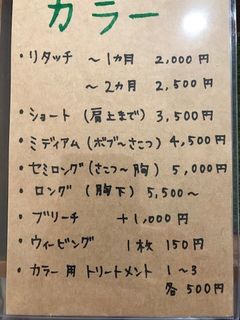 カラー
・リタッチ 〜1カ月 2,000円
〜2カ月 2,500円
・ショート (肩上まで) 3,500円
・ミディアム (ボブ〜さこつ) 4,500円
・セミロング (さこつ〜胸) 5,000円
・ロング (胸下) 5,500〜
・ブリーチ +1,000円
・ウィービング 1枚 150円
・カラー用トリートメント 1〜3
各500円